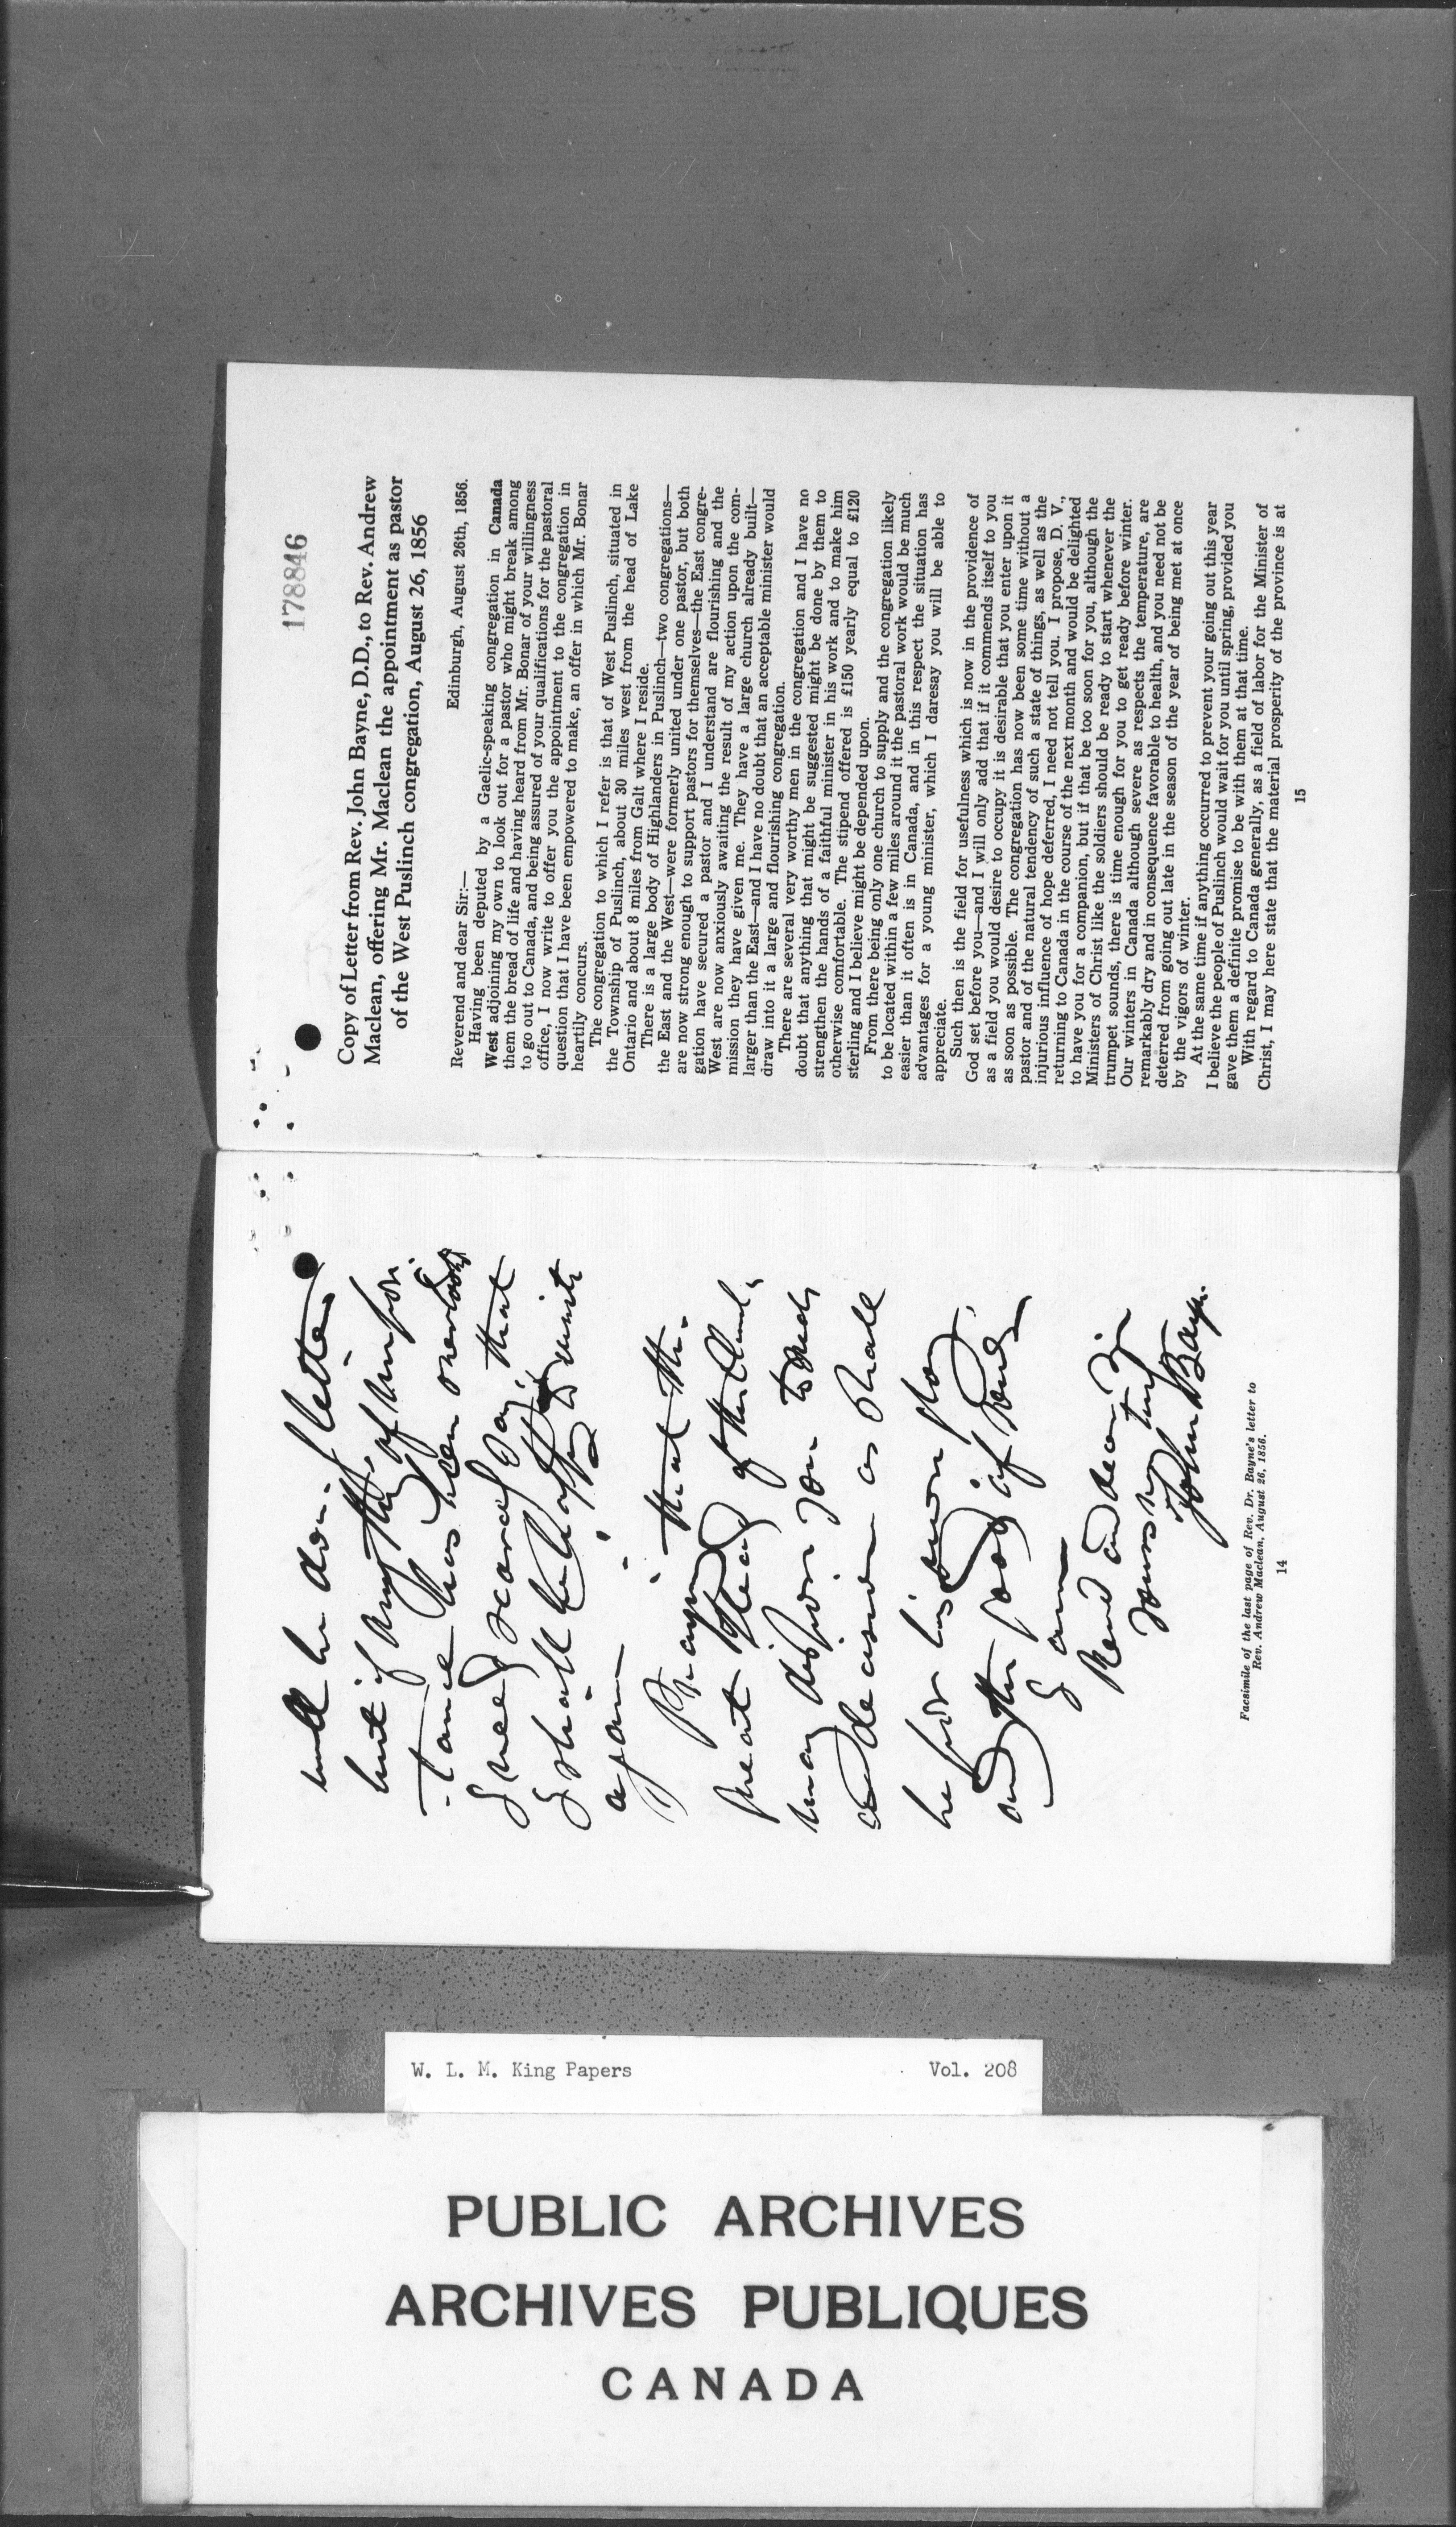 will be done by letter
but if anything of impor-
-tance has been overlooked
I need scarcely say that
I shall be happy to write
again.
Praying that the
great Head of the Church
may dispose you to such
a decision as shall
be for his own glory
and the good of souls,
I am
Revd and dear Sir
Yours very truly
John Bayne.
Facsimile of the last page of Rev. Dr. Bayne's letter to
Rev. Andrew Maclean, August 26, 1856.
14
178846
Copy of Letter from Rev. John Bayne, D.D., to Rev. Andrew
Maclean, offering Mr. Maclean the appointment as pastor
of the West Puslinch congregation, August 26, 1856
Edinburgh, August 26th, 1856.
Reverend and dear Sir:—
Having been deputed by a Gaelic-speaking congregation in Canada
West adjoining my own to look out for a pastor who might break among
them the bread of life and having heard from Mr. Bonar of your willingness
to go out to Canada, and being assured of your qualifications for the pastoral
office, I now write to offer you the appointment to the congregation in
question that I have been empowered to make, an offer in which Mr. Bonar
heartily concurs.
The congregation to which I refer is that of West Puslinch, situated in
the Township of Puslinch, about 30 miles west from the head of Lake
Ontario and about 8 miles from Galt where I reside.
There is a large body of Highlanders in Puslinch—two congregations—
the East and the West—were formerly united under one pastor, but both
are now strong enough to support pastors for themselves—the East congre-
gation have secured a pastor and I understand are flourishing and the
West are now anxiously awaiting the result of my action upon the com-
mission they have given me. They have a large church already built—
larger than the East—and I have no doubt that an acceptable minister would
draw into it a large and flourishing congregation.
There are several very worthy men in the congregation and I have no
doubt that anything that might be suggested might be done by them to
strengthen the hands of a faithful minister in his work and to make him
otherwise comfortable. The stipend offered is £150 yearly equal to £120
sterling and I believe might be depended upon.
From there being only one church to supply and the congregation likely
to be located within a few miles around it the pastoral work would be much
easier than it often is in Canada, and in this respect the situation has
advantages for a young minister, which I daresay you will be able to
appreciate.
Such then is the field for usefulness which is now in the providence of
God set before you—and I will only add that if it commends itself to you
as a field you would desire to occupy it is desirable that you enter upon it
as soon as possible. The congregation has now been some time without a
pastor and of the natural tendency of such a state of things, as well as the
injurious influence of hope deferred, I need not tell you. I propose, D. V.,
returning to Canada in the course of the next month and would be delighted
to have you for a companion, but if that be too soon for you, although the
Ministers of Christ like the soldiers should be ready to start whenever the
trumpet sounds, there is time enough for you to get ready before winter.
Our winters in Canada although severe as respects the temperature, are
remarkably dry and in consequence favorable to health, and you need not be
deterred from going out late in the season of the year of being met at once
by the vigors of winter.
At the same time if anything occurred to prevent your going out this year
I believe the people of Puslinch would wait for you until spring, provided you
gave them a definite promise to be with them at that time.
With regard to Canada generally, as a field of labor for the Minister of
Christ, I may here state that the material prosperity of the province is at
15
W. L. M. King Papers Vol. 208
PUBLIC ARCHIVES
ARCHIVES PUBLIQUES
CANADA